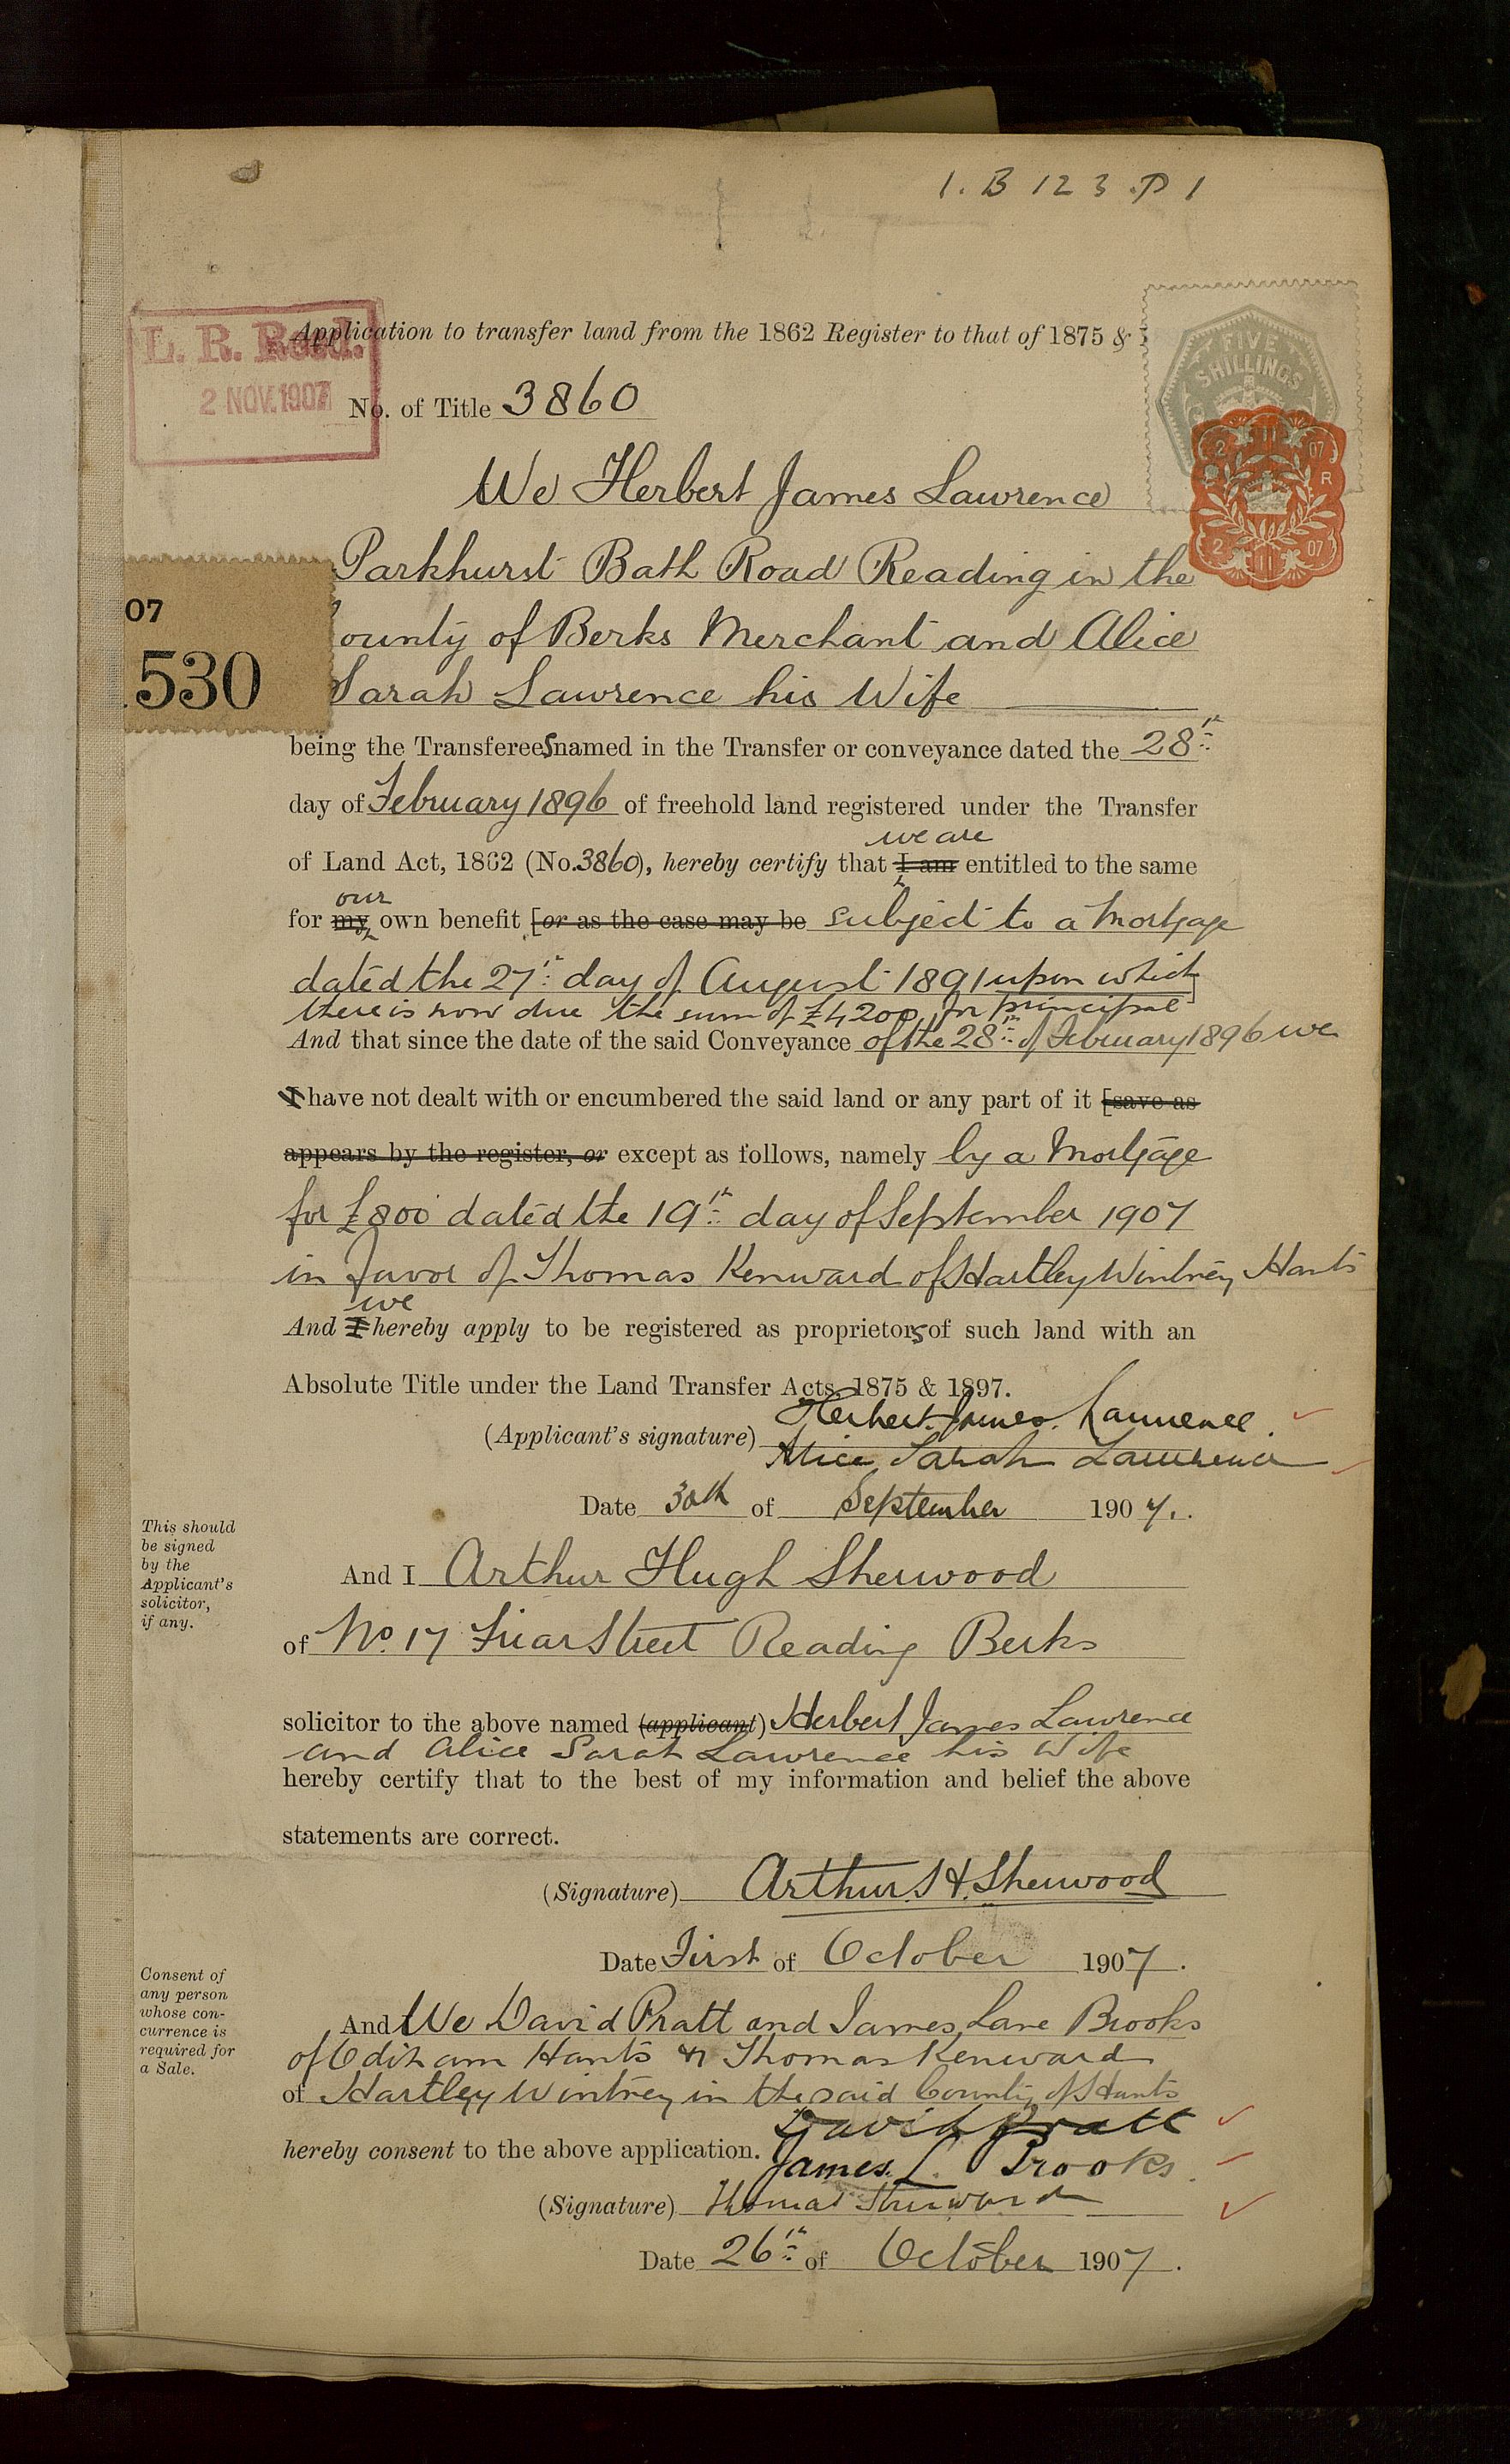 1. B 123 . P 1
Application to transfer land from the 1862 Register to that of 1875 &
L. R. Recd.
2 NOV. 1907
No. of Title 3860
FIVE SHILLINGS
2 11 07
R
2 11 07
We Herbert James Lawrence
Parkhurst Bath Road Reading in the
ounty of Berks Merchant and Alice
Sarah Lawrence his Wife
07
530
being the Transferees named in the Transfer or conveyance dated the 28th
day of February 1896 of freehold land registered under the Transfer
we are
of Land Act, 1862 (No. 3860), hereby certify that I am entitled to the same
our
for my own benefit [or as the case may be subject to a Mortgage
dated the 27th day of August 1891 upon which]
there is now due the sum of £4200 for principal
And that since the date of the said Conveyance of the 28th of February 1896 we
I have not dealt with or encumbered the said land or any part of it [save as
appears by the register, or except as follows, namely by a Mortgage
for £800 dated the 19th day of September 1907
in favor of Thomas Kenward of Hartley Wintney Hants
we
And I hereby apply to be registered as proprietors of such land with an
Absolute Title under the Land Transfer Acts, 1875 & 1897.
Herbert James Lawrence
(Applicant's signature)
Alice Sarah Lawrence
Date 30th of September 1907.
This should
be signed
by the
Applicant's
solicitor,
if any.
And I Arthur Hugh Sherwood
of No. 17 Friar Street Reading Berks
solicitor to the above named (applicant) Herbert James Lawrence
and Alice Sarah Lawrence his Wife
hereby certify that to the best of my information and belief the above
statements are correct.
(Signature) Arthur H. Sherwood
Date First of October 1907.
Consent of
any person
whose con-
currence is
required for
a Sale.
And We David Pratt and James Lane Brooks
of Odiham Hants & Thomas Kenward
of Hartley Wintney in the said County of Hants
David Pratt
hereby consent to the above application.
James L. Brooks.
(Signature) Thomas Kenward
Date 26th of October 1907.